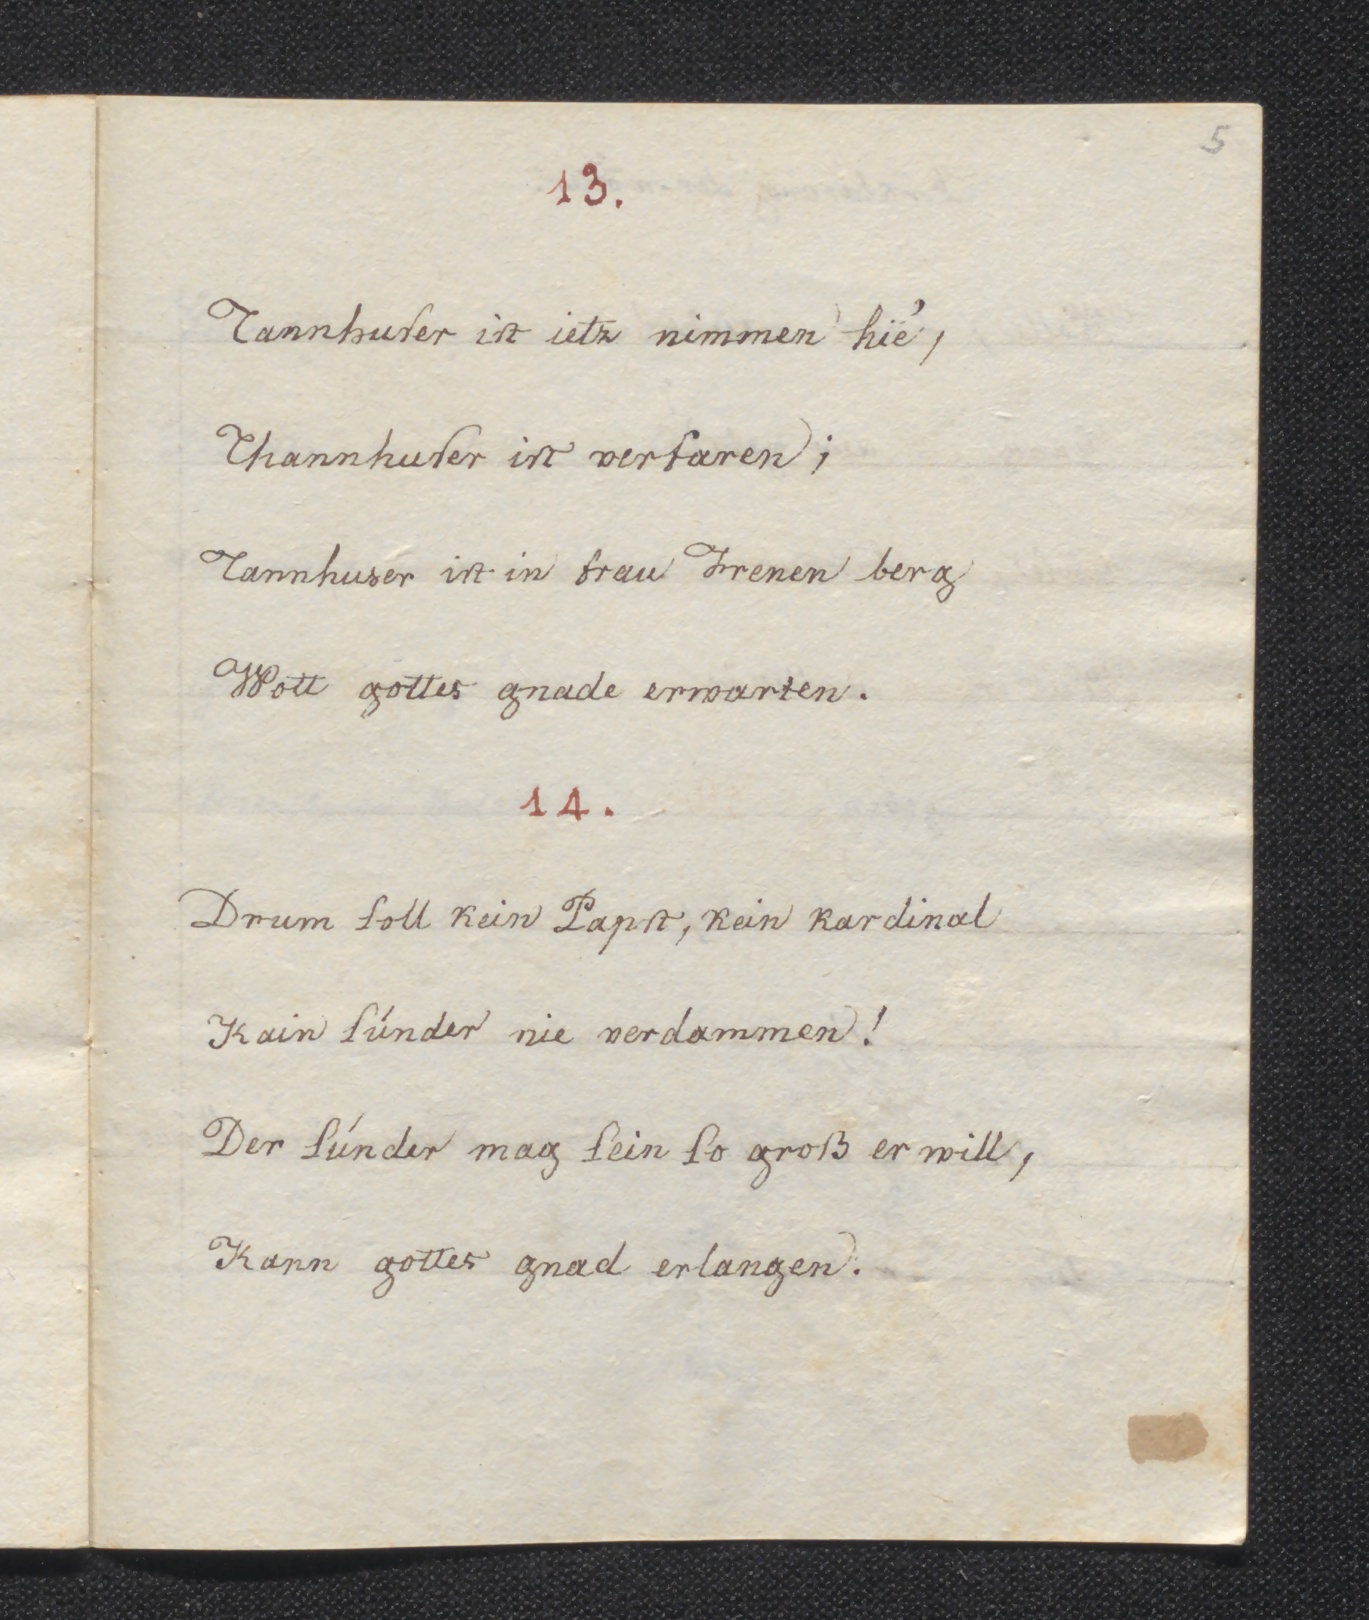 5
13.
Tannhuſer iſt ietz nimmen hië,
Thannhuſer iſt verfaren;
Tannhuser iſt in frau Frenen berg
Wott gottes gnade erwarten.
14.
Drum ſoll kein Papſt, kein kardinal
Kain ſúnder nie verdammen!
Der ſúnder mag ſein ſo groß er will,
Kann gottes gnad erlangen.